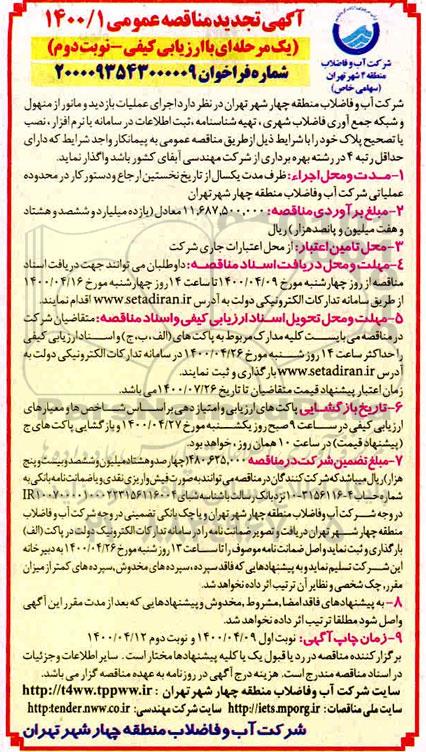 آگهی تجدید مناقصه عمومی ۱۴۰۰/۱
(یک مرحله‌ای با ارزیابی کیفی - نوبت دوم)
شماره فراخوان ۲۰۰۰۰۹۳۵۴۳۰۰۰۰۰۹
شرکت آب و فاضلاب
منطقه ۴ شهر تهران
(سهامی خاص)
شرکت آب و فاضلاب منطقه چهار شهر تهران در نظر دارد اجرای عملیات بازدید و مانور از منهول
و شبکه جمع آوری فاضلاب شهری، تهیه شناسنامه، ثبت اطلاعات در سامانه یا نرم افزار، نصب
یا تصحیح پلاک خود را با شرایط ذیل از طریق مناقصه عمومی به پیمانکار واجد شرایط که دارای
حداقل رتبه ۴ در رشته بهره برداری از شرکت مهندسی آبفای کشور باشد واگذار نماید.
۱- مدت و محل اجراء: ظرف مدت یکسال از تاریخ نخستین ارجاع و دستور کار در محدوده
عملیاتی شرکت آب و فاضلاب منطقه چهار شهر تهران
۲- مبلغ برآوردی مناقصه: ۱۱,۶۸۷,۵۰۰,۰۰۰ معادل (یازده میلیارد و ششصد و هشتاد
و هفت میلیون و پانصد هزار) ریال
۳- محل تامین اعتبار: از محل اعتبارات جاری شرکت
۴- مهلت و محل دریافت اسناد مناقصه: داوطلبان می توانند جهت دریافت اسناد
مناقصه از روز چهارشنبه مورخ ۱۴۰۰/۰۴/۰۹ تا ساعت ۱۴ روز چهارشنبه مورخ ۱۴۰۰/۰۴/۱۶
از طریق سامانه تدارکات الکترونیکی دولت به آدرس www.setadiran.ir اقدام نمایند.
۵- مهلت و محل تحویل اسناد ارزیابی کیفی و اسناد مناقصه: متقاضیان شرکت
در مناقصه می بایست کلیه مدارک مربوط به پاکت های (الف، ب، ج) و اسناد ارزیابی کیفی
را حداکثر ساعت ۱۴ روز شنبه مورخ ۱۴۰۰/۰۴/۲۶ در سامانه تدارکات الکترونیکی دولت به
آدرس www.setadiran.ir بارگذاری و ثبت نمایند.
زمان اعتبار پیشنهاد قیمت متقاضیان تا تاریخ ۱۴۰۰/۰۷/۲۶ می باشد.
۶- تاریخ بازگشایی پاکت های ارزیابی و امتیاز دهی بر اساس شاخص ها و معیارهای
ارزیابی کیفی در ساعت ۹ صبح روز یکشنبه مورخ ۱۴۰۰/۰۴/۲۷ و بازگشایی پاکات های ج
(پیشنهاد قیمت) در ساعت ۱۰ همان روز، خواهد بود.
۷- مبلغ تضمین شرکت در مناقصه ۴۸۰,۶۲۵,۰۰۰ (چهارصد و هشتاد میلیون و ششصد و بیست و پنج
هزار) ریال میباشد که شرکت کنندگان در مناقصه می توانند به صورت فیش واریزی نقدی و یا ضمانت نامه بانکی به
در وجه شرکت آب و فاضلاب منطقه چهار شهر تهران و یا چک بانکی تضمینی در وجه شرکت آب و فاضلاب
منطقه چهار شهر تهران دریافت و تصویر ضمانت نامه را در سامانه تدارکات الکترونیکی دولت در پاکت (الف)
بارگذاری و ثبت نماید و اصل ضمانت نامه موصوف را تا ساعت ۱۳ روز شنبه مورخ ۱۴۰۰/۰۴/۲۶ به دبیرخانه
این شرکت تسلیم نماید و به پیشنهادهایی که فاقد سپرده، سپرده های مخدوش، سپرده های کمتر از میزان
مقرر، چک شخصی و نظایر آن ترتیب اثر داده نخواهد شد.
۸- به پیشنهادهای فاقد امضا، مشروط، مخدوش و پیشنهادهایی که بعد از مدت مقرر این آگهی
واصل شود مطلقا ترتیب اثر داده نخواهد شد.
۹- زمان چاپ آگهی: نوبت اول ۱۴۰۰/۰۴/۰۹ و نوبت دوم ۱۴۰۰/۰۴/۱۲
برگزار کننده مناقصه در رد یا قبول یک یا کلیه پیشنهادها مختار است. سایر اطلاعات و جزئیات
در اسناد مناقصه مندرج است. هزینه درج آگهی در روزنامه به عهده مناقصه گزار می باشد.
سایت شرکت آب و فاضلاب منطقه چهار شهر تهران: http://t4ww.tppww.ir
سایت ملی مناقصات: http://iets.mporg.ir سایت شرکت مهندسی: http:tender.nww.co.ir
شرکت آب و فاضلاب منطقه چهار شهر تهران